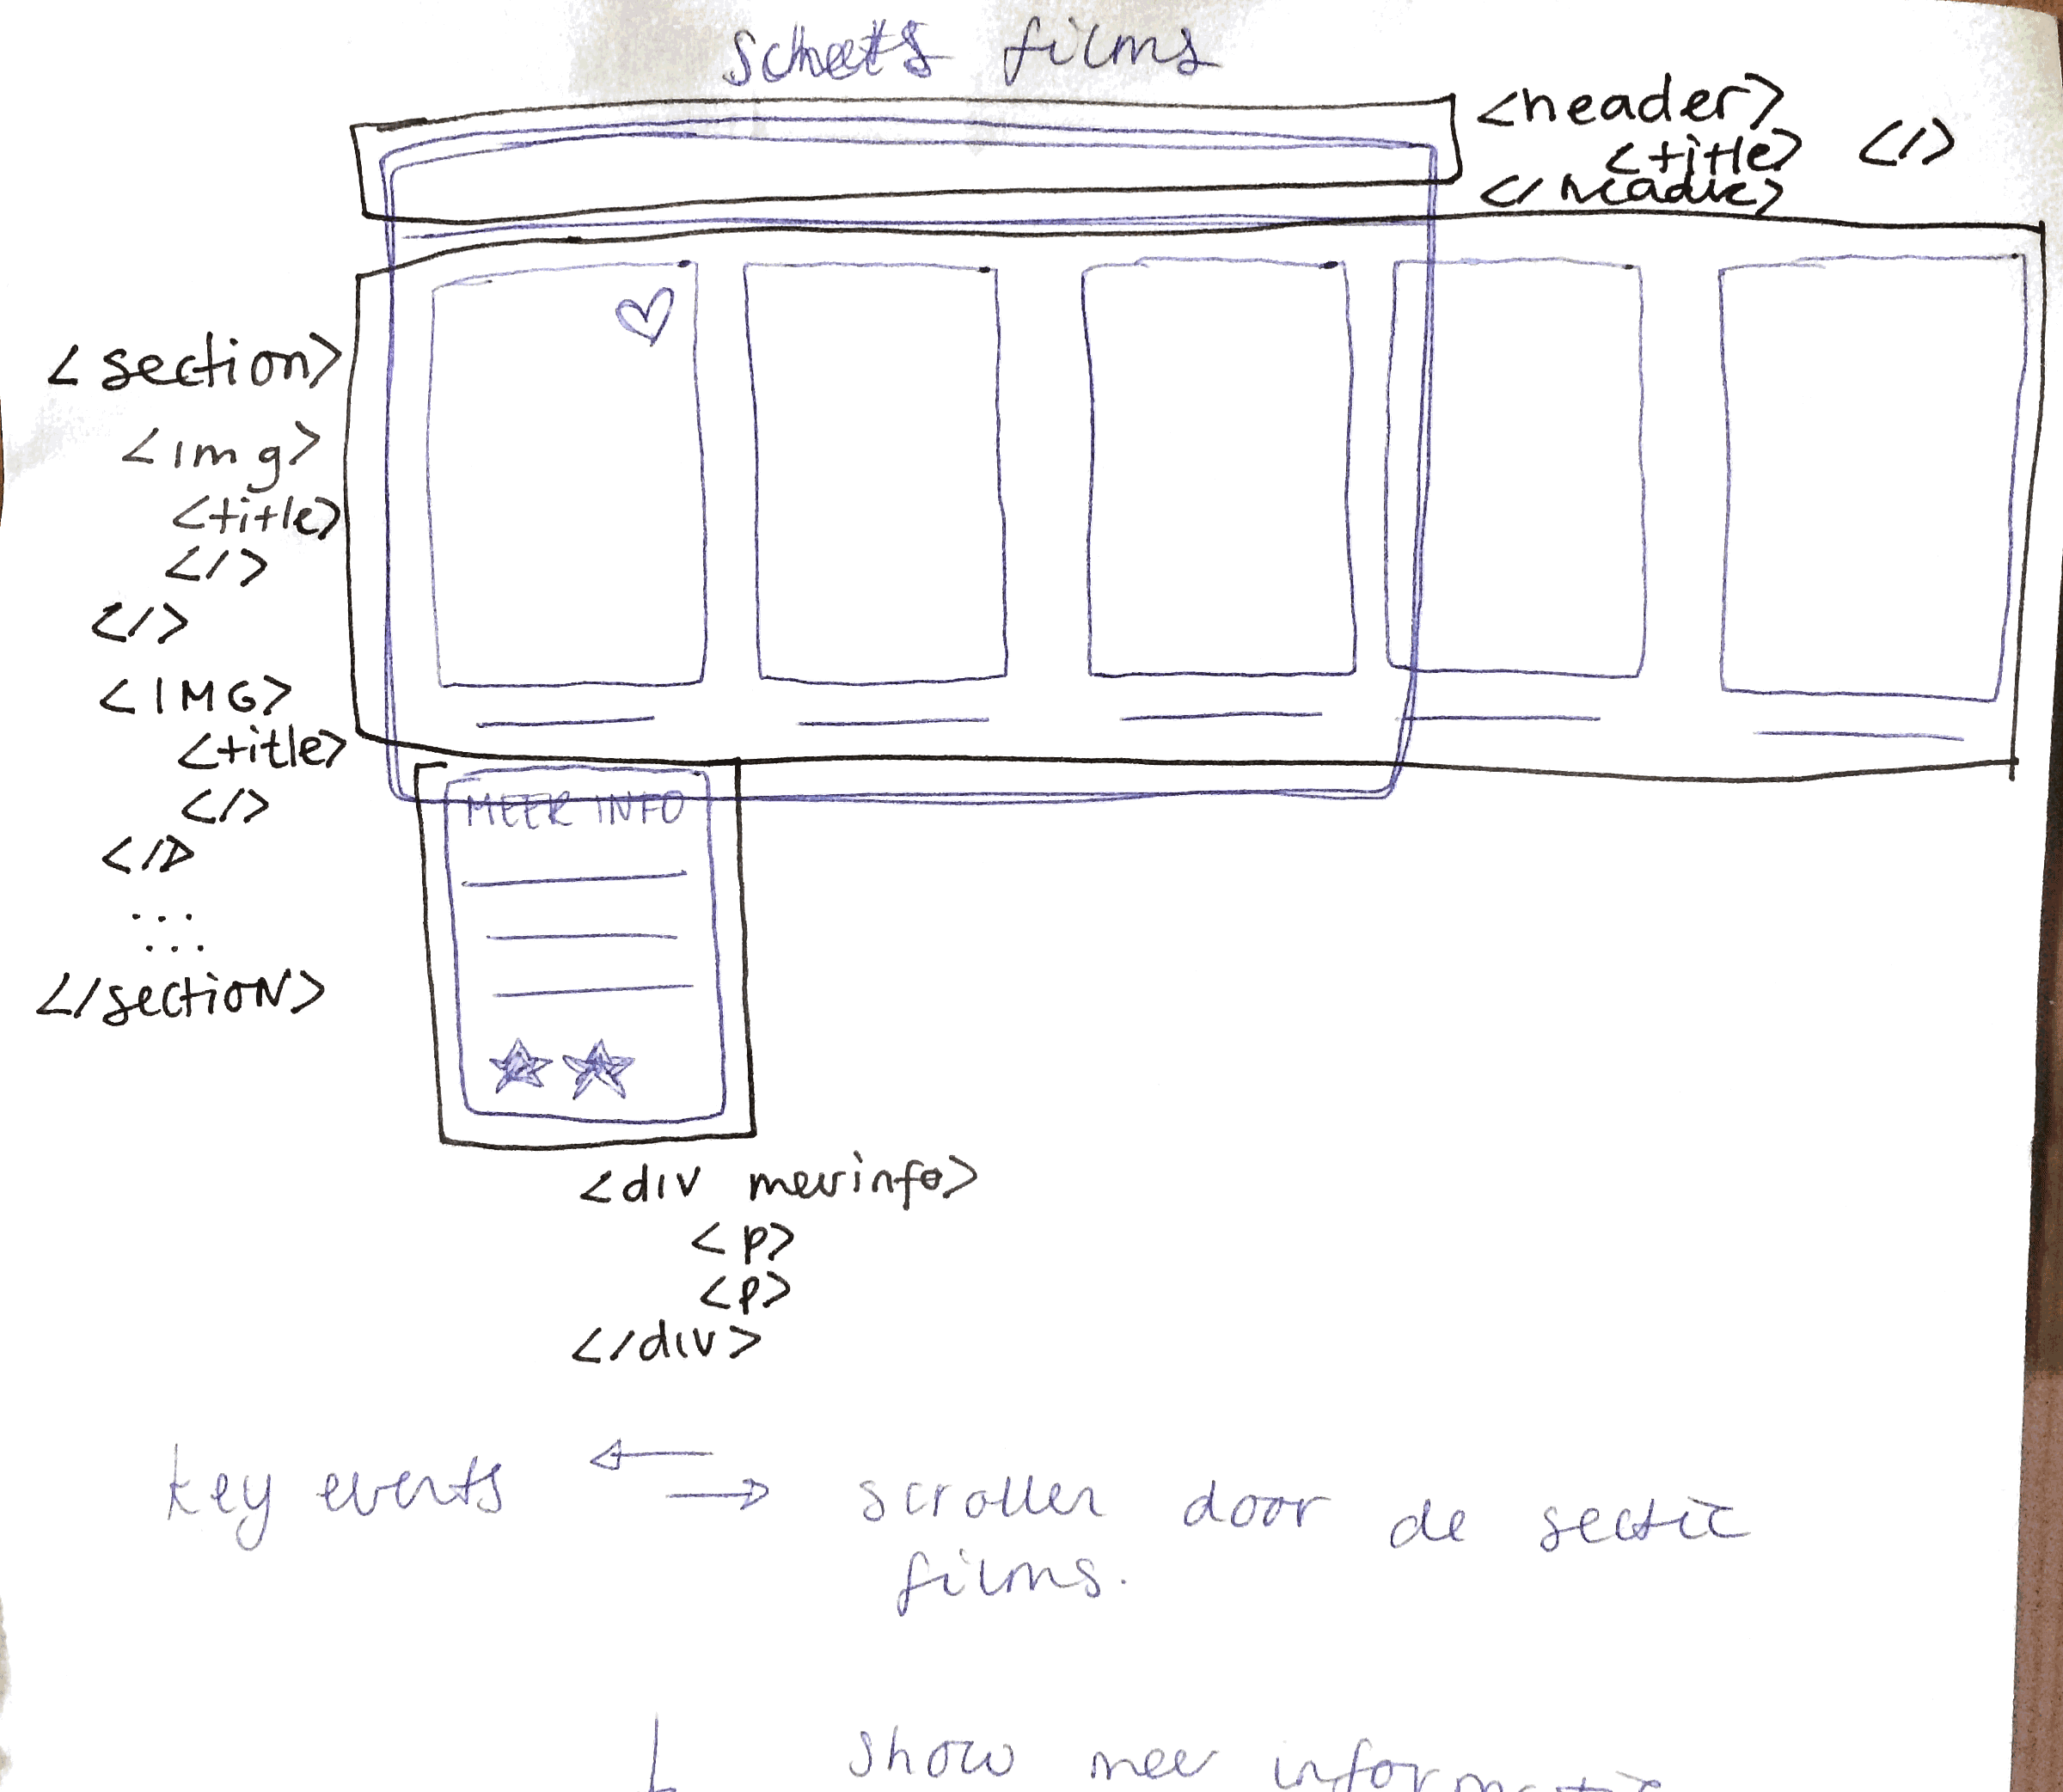 schets films
<header>
<title> </>
</header>
<section>
<img>
<title>
</>
</>
<IMG>
<title>
</>
</>
...
...
</sectioN>
MEER INFO
<div meerinfo>
<p>
<p>
</div>
key events ← → scrollen door de sectie
films.
↓ show meer informatie